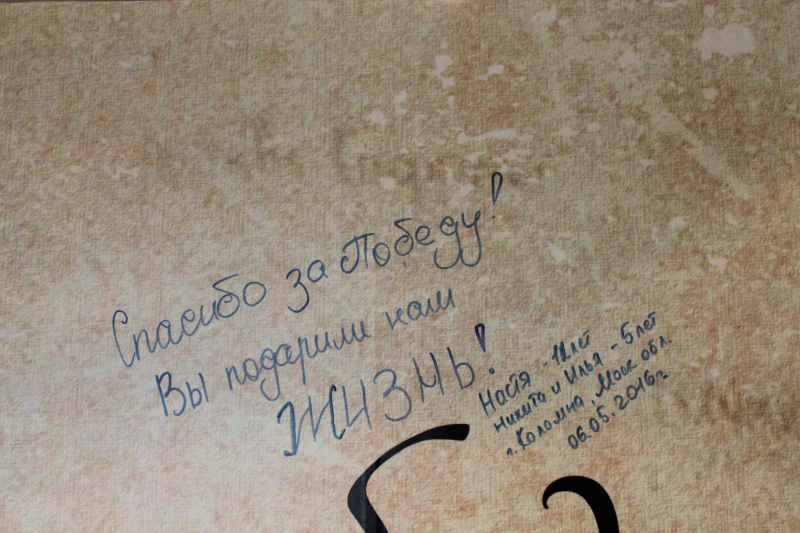 Спасибо за Победу!
Вы подарили нам
ЖИЗНЬ!
Настя - 12 лет
Никита и Илья - 5 лет
г. Коломна, Моск. обл.
06.05.2016г.